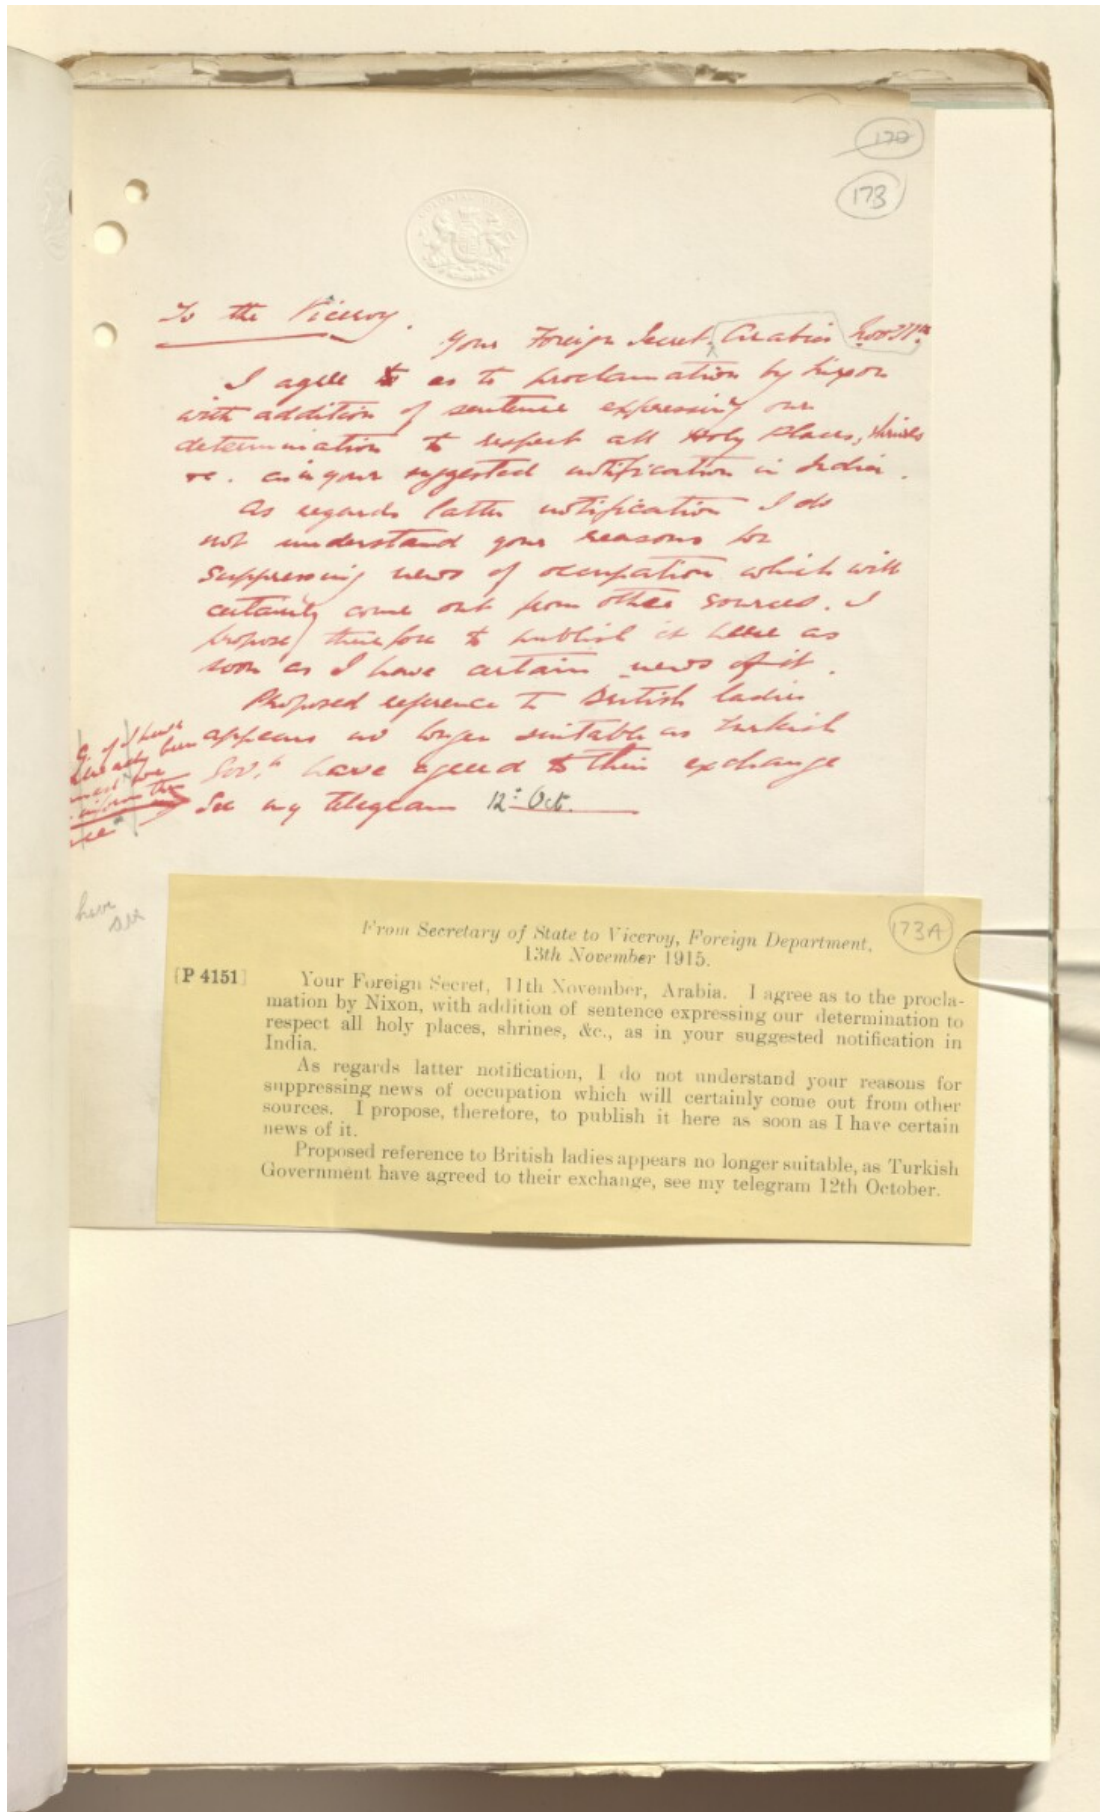 170
173
To the Viceroy.
Your Foreign Secret. Arabia Nov 11th.
I agree as to proclamation by Nixon
with addition of sentence expressing our
determination to respect all Holy Places, shrines
&c. as in your suggested notification in India.
As regards latter notification I do
not understand your reasons for
suppressing news of occupation which will
certainly come out from other sources. I
propose therefore to publish it here as
soon as I have certain news of it.
Proposed reference to British ladies
appears no longer suitable as Turkish
Govt. have agreed to their exchange
See my telegram 12: Oct.
already been
173A
From Secretary of State to Viceroy, Foreign Department,
13th November 1915.
[P 4151]
Your Foreign Secret, 11th November, Arabia. I agree as to the procla-
mation by Nixon, with addition of sentence expressing our determination to
respect all holy places, shrines, &c., as in your suggested notification in
India.
As regards latter notification, I do not understand your reasons for
suppressing news of occupation which will certainly come out from other
sources. I propose, therefore, to publish it here as soon as I have certain
news of it.
Proposed reference to British ladies appears no longer suitable, as Turkish
Government have agreed to their exchange, see my telegram 12th October.